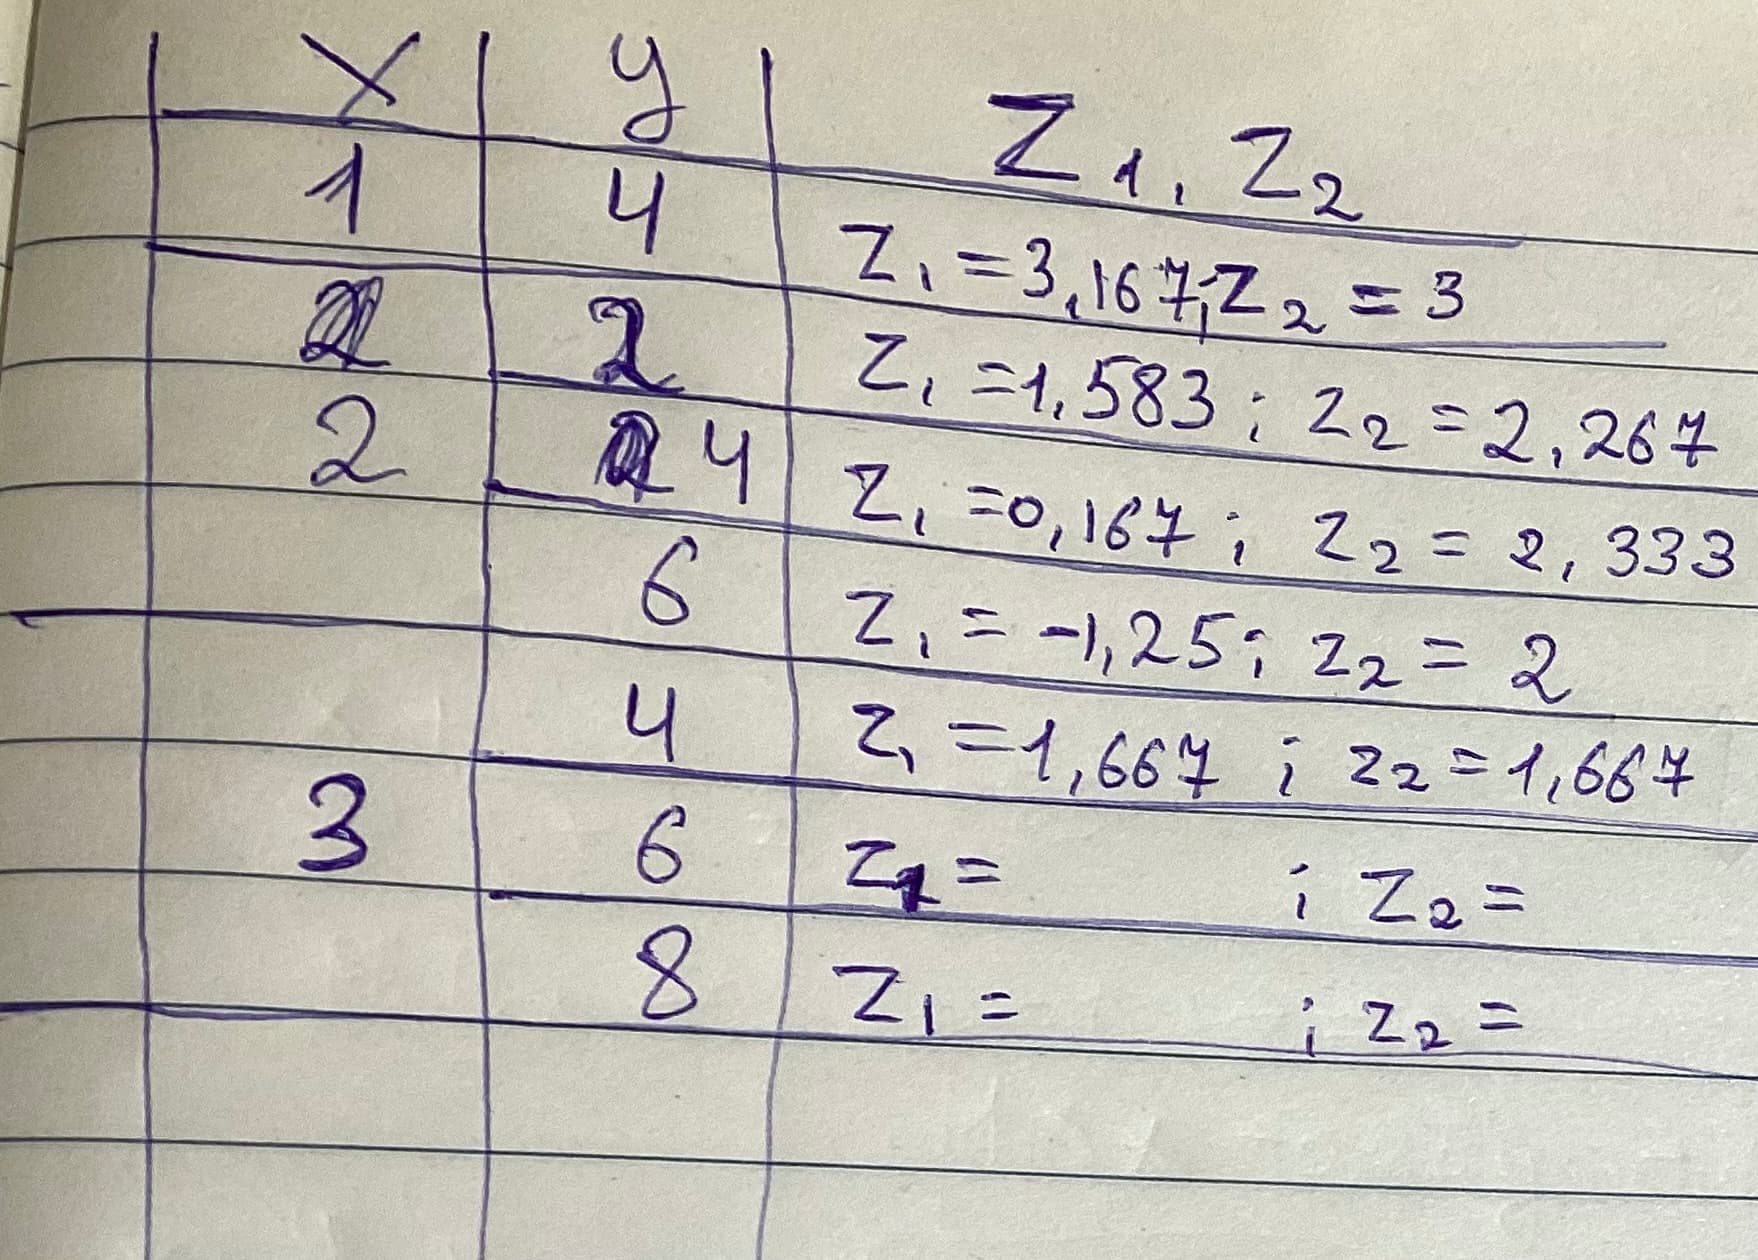 x y Z1, Z2
1 4 Z1 = 3,167; Z2 = 3
2 Z1 = 1,583 ; Z2 = 2,267
2 4 Z1 = 0,167 ; Z2 = 2,333
6 Z1 = -1,25 ; Z2 = 2
4 Z1 = 1,667 ; Z2 = 1,667
3 6 Z1 = ; Z2 =
8 Z1 = ; Z2 =